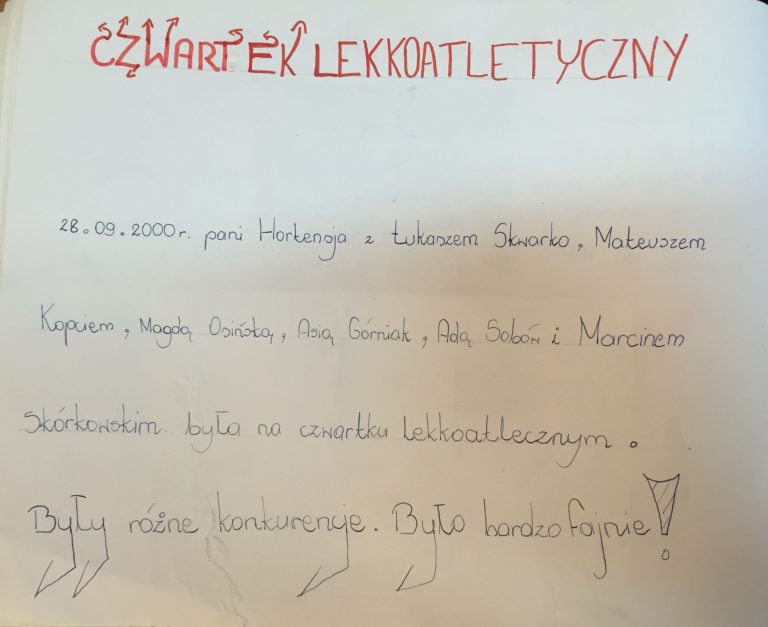 CZWARTEK LEKKOATLETYCZNY
28.09.2000r. pani Hortensja z Łukaszem Skwarko, Mateuszem
Kopciem, Magdą Osińską, Asią Górniak, Adą Soboń i Marcinem
Skórkowskim była na czwartku lekkoatlecznym.
Były różne konkurencje. Było bardzo fajnie!